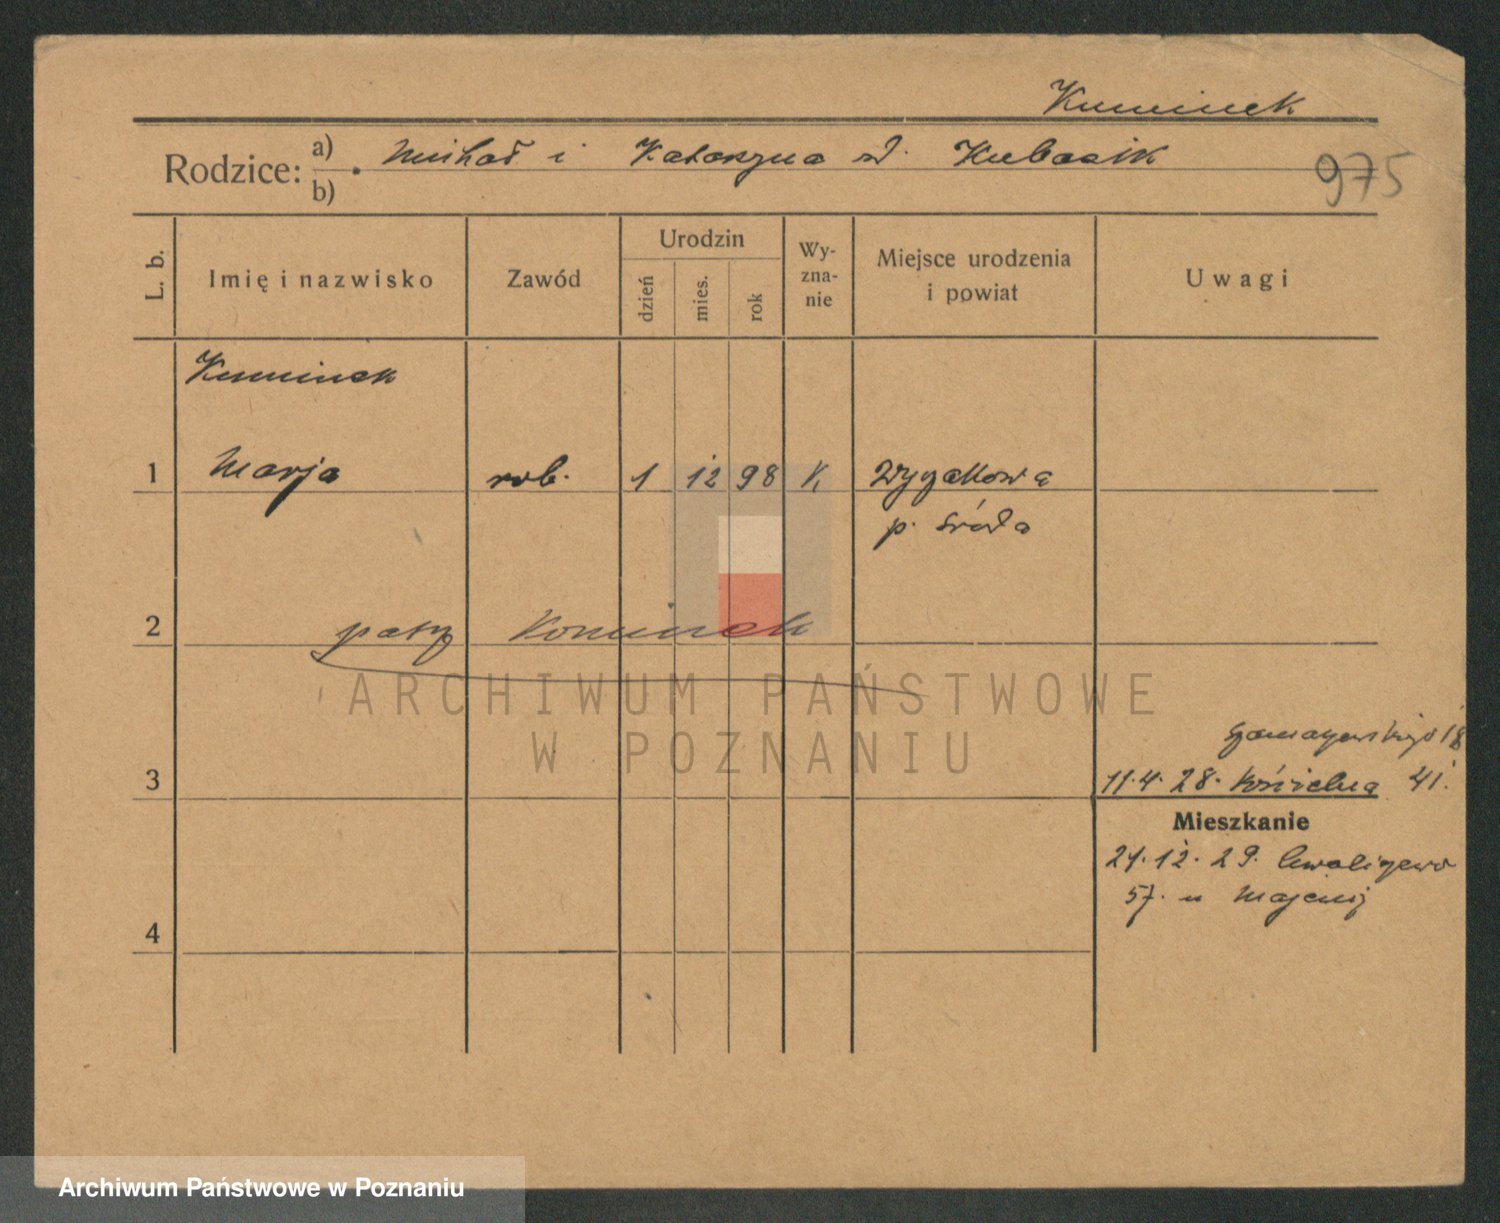 Kuminek
Rodzice: a) Michał i Katarzyna d. Kubasik
b)
975
L. b.
Imię i nazwisko
Zawód
Urodzin
dzień
mies.
rok
Wy-
zna-
nie
Miejsce urodzenia
i powiat
Uwagi
Kuminek
1 Marja rob. 1 12 98 K
p. Środa
2 patrz Kominek
ARCHIWUM PAŃSTWOWE
W POZNANIU
18
3 11.4.28. Kościelna 41.
Mieszkanie
12.29.
57. u
4
Archiwum Państwowe w Poznaniu